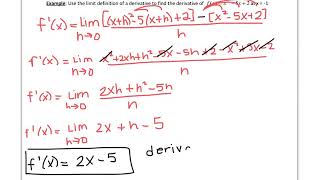 Example: Use the limit definition of a derivative to find the derivative of
f'(x) = Lim h→0 [(x+h)²-5(x+h)+2] - [x²-5x+2] / h
f'(x) = Lim h→0 x²+2xh+h²-5x-5h+2-x²+5x-2 / h
f'(x) = Lim h→0 2xh+h²-5h / h
f'(x) = Lim h→0 2x+h-5
f'(x) = 2x-5 deriv